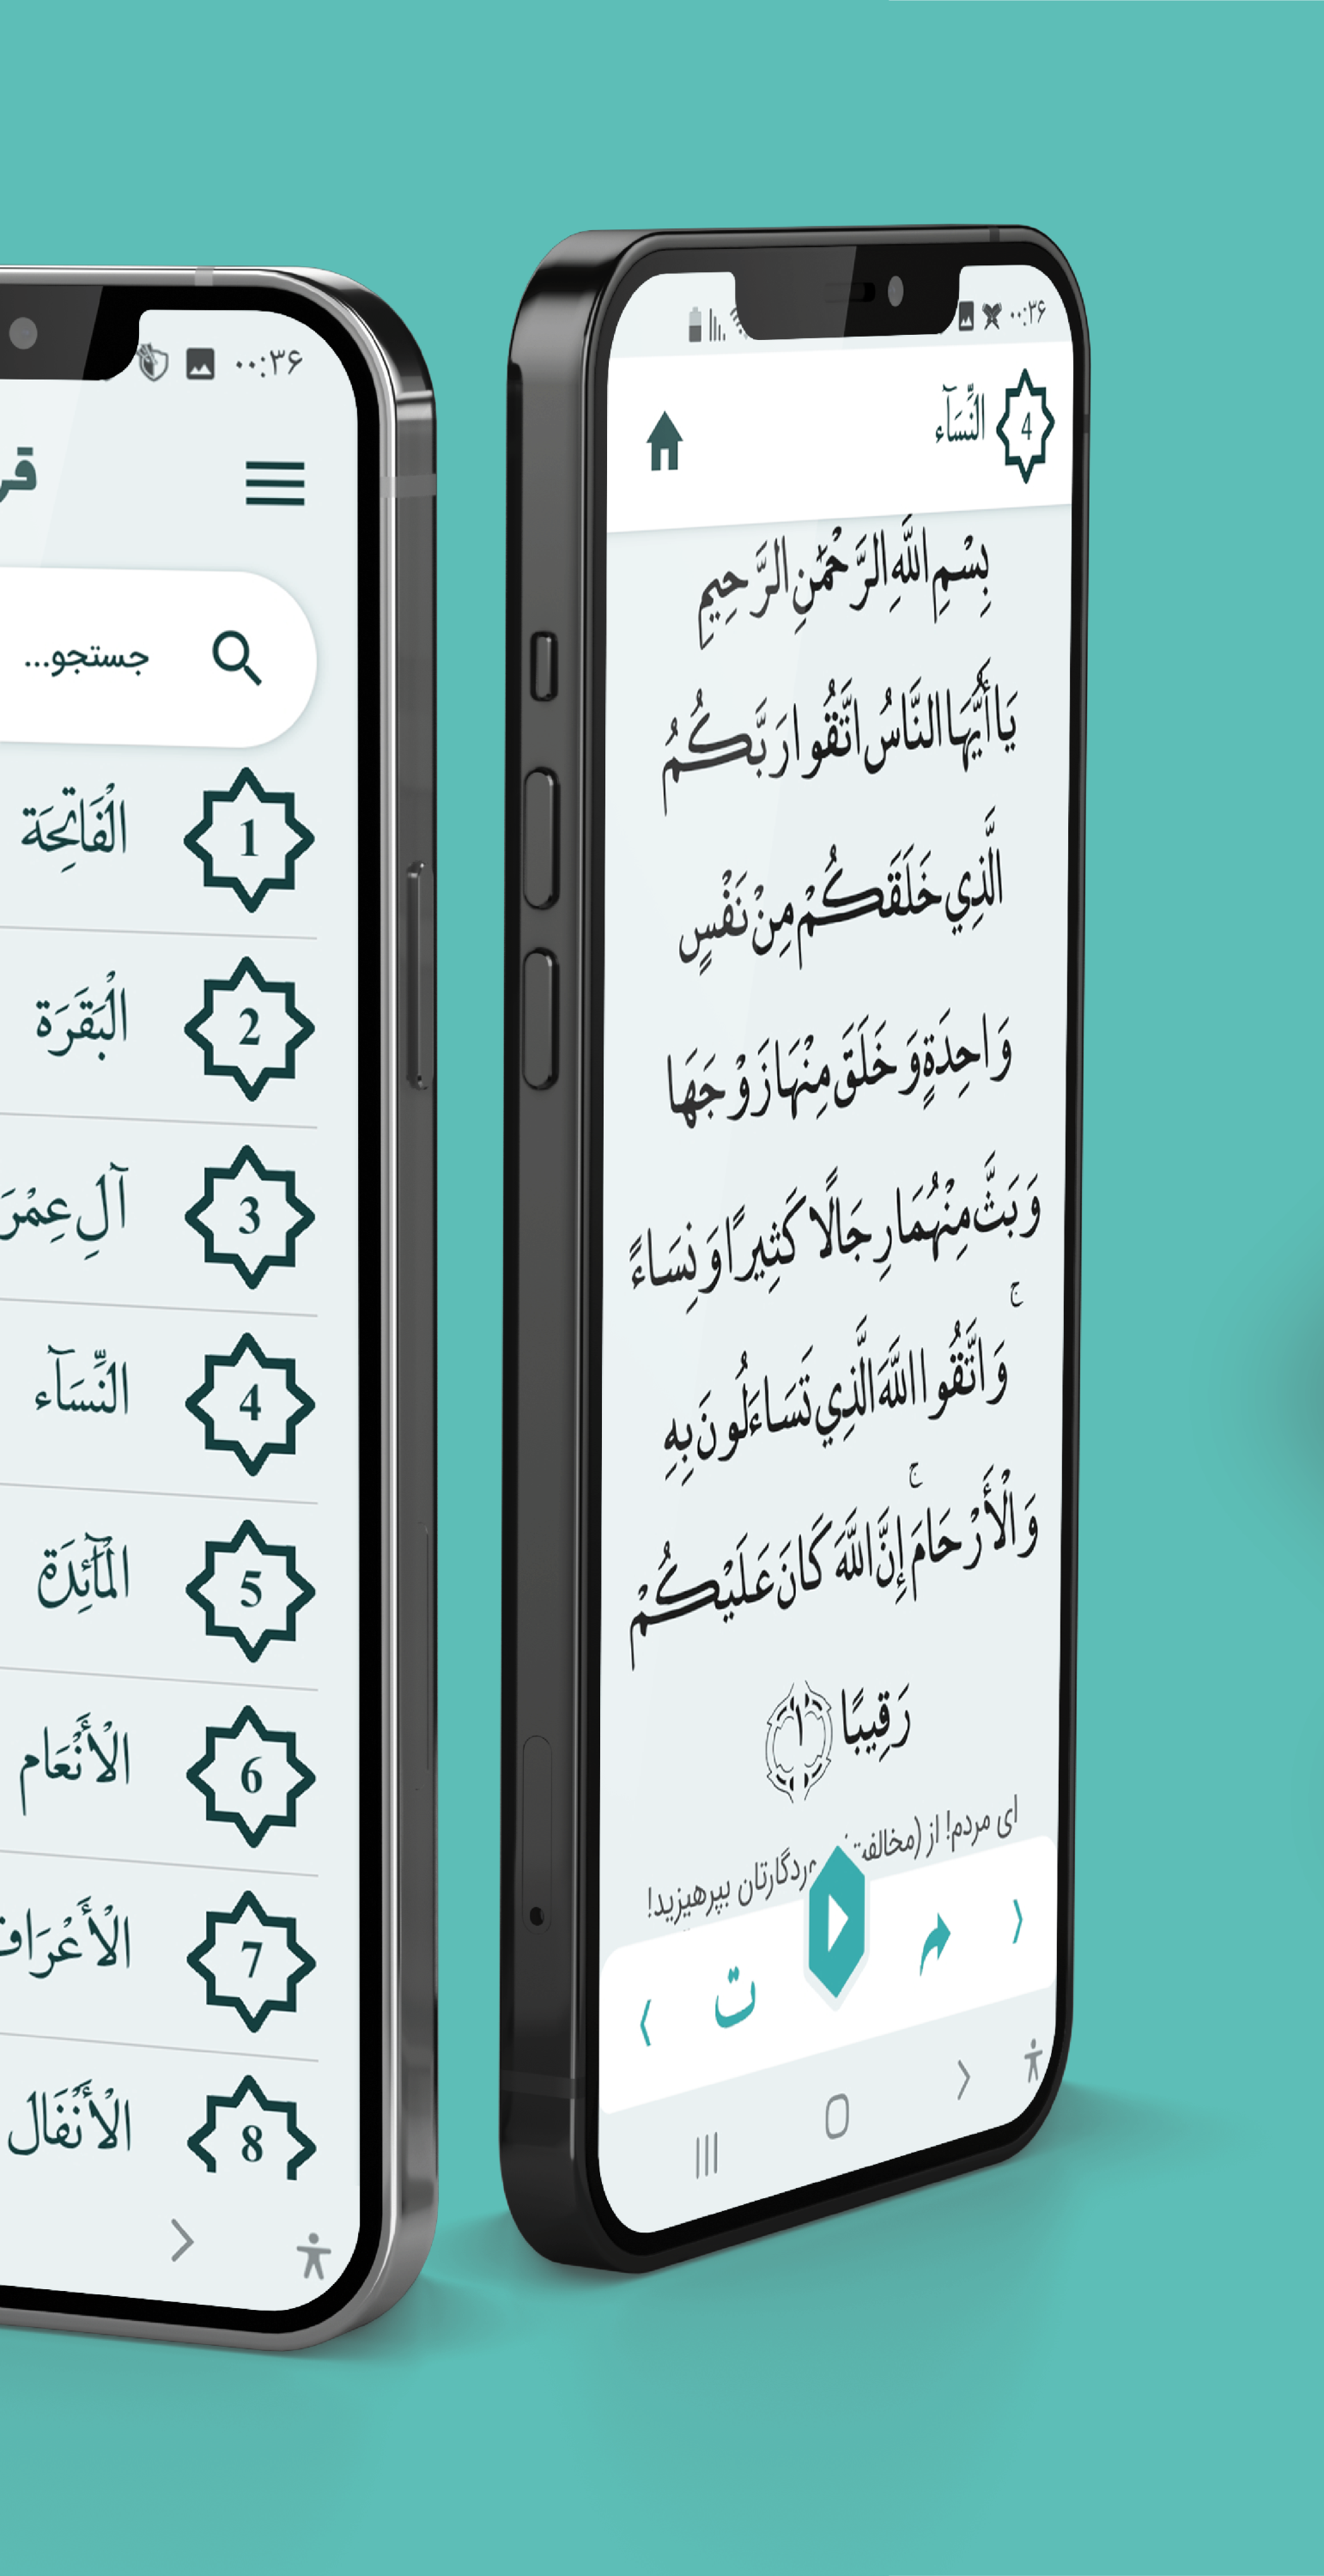 ۰۰:۳۶
جستجو...
1 الْفَاتِحَة
2 الْبَقَرَة
3 آلِ عِمْرَ
4 النِّسَآء
5 الْمَآئِدَة
6 الْأَنْعَام
7 الْأَعْرَاف
8 الْأَنْفَال
۰۰:۳۶
4 النِّسَآء
بِسْمِ اللَّهِ الرَّحْمَٰنِ الرَّحِيمِ
يَا أَيُّهَا النَّاسُ اتَّقُوا رَبَّكُمُ
الَّذِي خَلَقَكُمْ مِنْ نَفْسٍ
وَاحِدَةٍ وَخَلَقَ مِنْهَا زَوْجَهَا
وَبَثَّ مِنْهُمَا رِجَالًا كَثِيرًا وَنِسَاءً
ۚ وَاتَّقُوا اللَّهَ الَّذِي تَسَاءَلُونَ بِهِ
وَالْأَرْحَامَ ۚ إِنَّ اللَّهَ كَانَ عَلَيْكُمْ
رَقِيبًا ۱
ای مردم! از (مخالفت
ردگارتان بپرهیزید!
ت